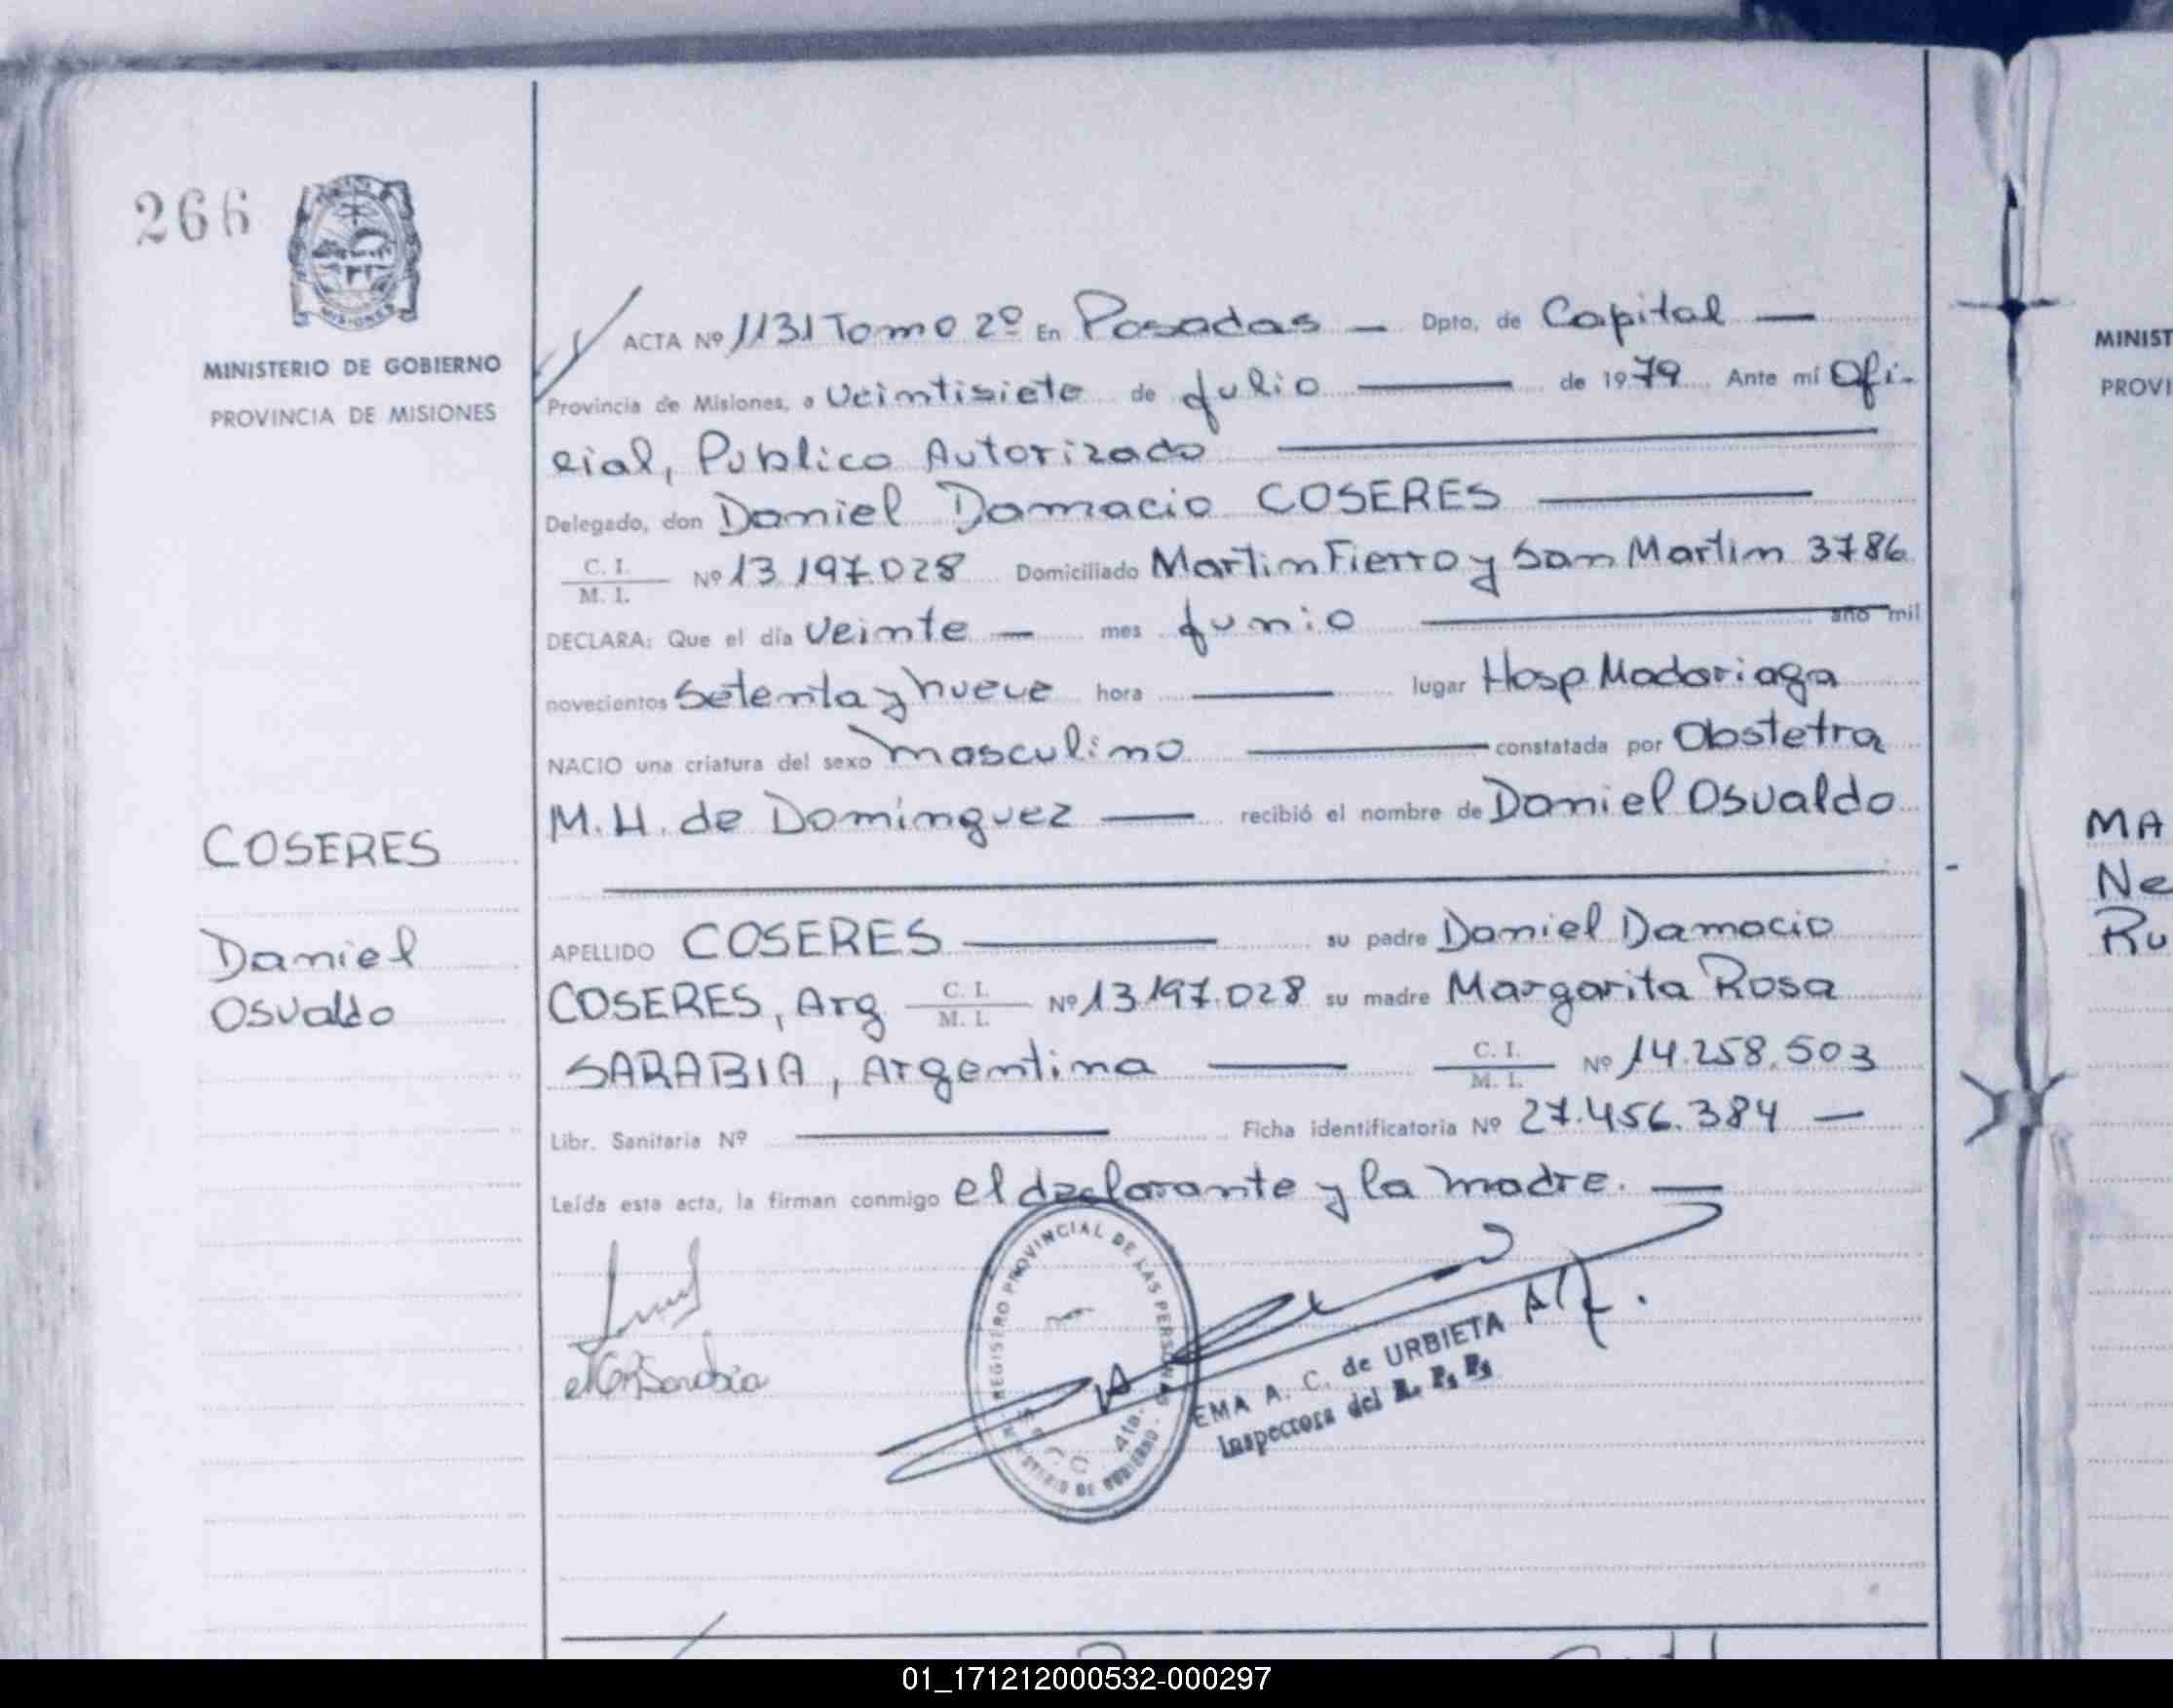 266
MINISTERIO DE GOBIERNO
PROVINCIA DE MISIONES
COSERES
Daniel
Osvaldo
ACTA Nº 1131 Tomo 2º En Posadas — Dpto. de Capital —
Provincia de Misiones, a Veintisiete de Julio — de 1979 Ante mí Ofi-
cial, Publico Autorizado —
Delegado, don Daniel Damacio COSERES —
C. I.
M. I. Nº 13.197.028 Domiciliado Martin Fierro y San Martin 3786
DECLARA: Que el día Veinte — mes Junio — año mil
novecientos Setenta y nueve hora — lugar Hosp Madariaga
NACIO una criatura del sexo masculino — constatada por Obstetra
M.H. de Dominguez — recibió el nombre de Daniel Osvaldo
APELLIDO COSERES — su padre Daniel Damacio
COSERES, Arg C. I. M. I. Nº 13.197.028 su madre Margarita Rosa
SARABIA, Argentina — C. I. M. I. Nº 14.258.503
Libr. Sanitaria Nº — Ficha identificatoria Nº 27.456.384 —
Leída esta acta, la firman conmigo el declarante y la madre. —
REGISTRO PROVINCIAL DE LAS PERSONAS
MINISTERIO DE GOBIERNO
4ta.
EMA A. C. de URBIETA
Inspectora del R. P. P.
MINIST
PROVI
MA
Ne
Ru
01_171212000532-000297